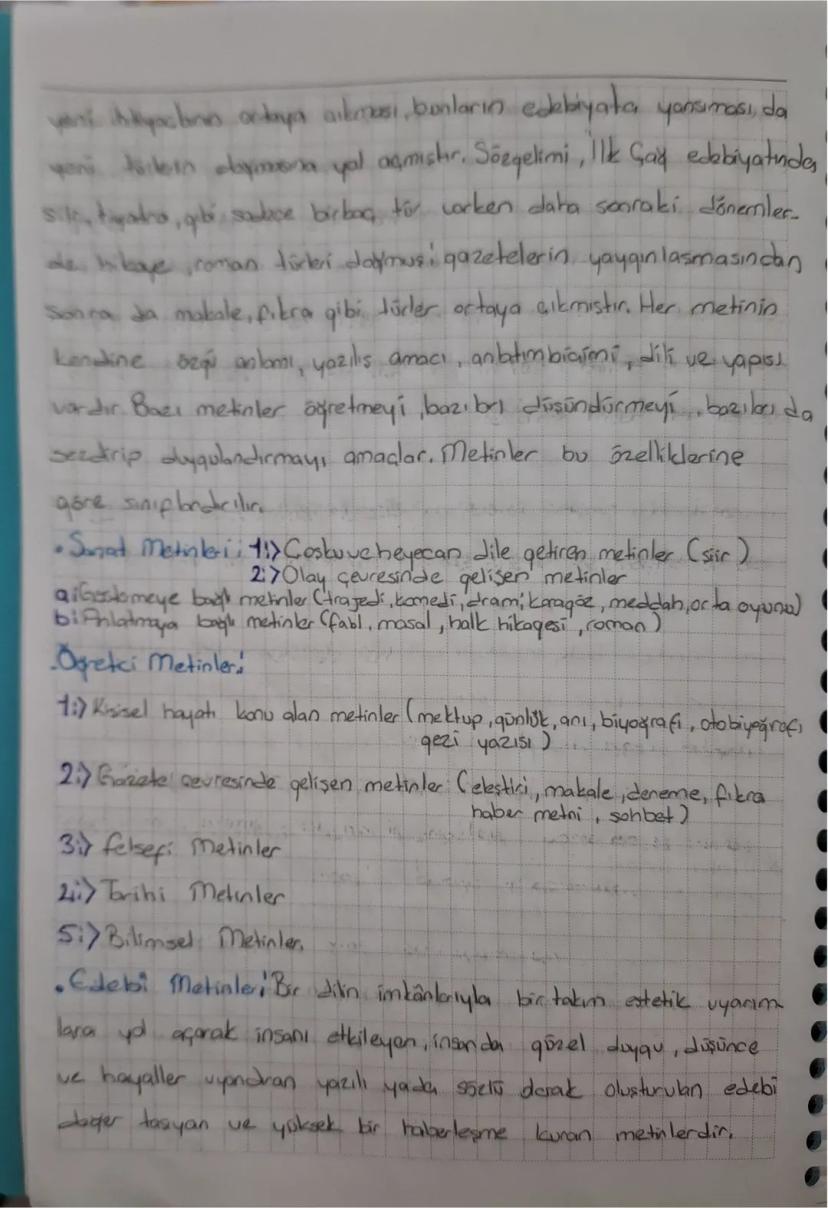 yeni ihtiyaçların ortaya çıkması, bunların edebiyata yansıması, da
yeni türlerin doğmasına yol açmıştır. Sözgelimi, İlk Çağ edebiyatında
şiir, tiyatro, gibi sadece birkaç tür varken daha sonraki dönemler-
de hikaye, roman türleri doğmuş; gazetelerin yaygınlaşmasından
sonra da makale, fıkra gibi türler ortaya çıkmıştır. Her metinin
kendine özgü anlamı, yazılış amacı, anlatım biçimi, dili ve yapısı
vardır. Bazı metinler öğretmeyi, bazıları düşündürmeyi, bazıları da
sezdirip duygulandırmayı amaçlar. Metinler bu özelliklerine
göre sınıflandırılır.
• Sanat Metinleri: 1:) Coşku ve heyecan dile getiren metinler (şiir)
2:) Olay çevresinde gelişen metinler
a: Göstermeye bağlı metinler (trajedi, komedi, dram; karagöz, meddah, orta oyunu)
b: Anlatmaya bağlı metinler (fabl, masal, halk hikayesi, roman)
. Öğretici Metinler:
1:) Kişisel hayatı konu alan metinler (mektup, günlük, anı, biyografi, otobiyografi,
gezi yazısı)
2:) Gazete çevresinde gelişen metinler (eleştiri, makale, deneme, fıkra
haber metni, sohbet)
3:) felsefi Metinler
4:) Tarihi Metinler
5:) Bilimsel Metinler.
. Edebi Metinler: Bir dilin imkânlarıyla bir takım estetik uyarım-
lara yol açarak insanı etkileyen, insanda güzel duygu, düşünce
ve hayaller uyandıran yazılı yada sözlü olarak oluşturulan edebi
değer taşıyan ve yüksek bir haberleşme kuran metinlerdir.